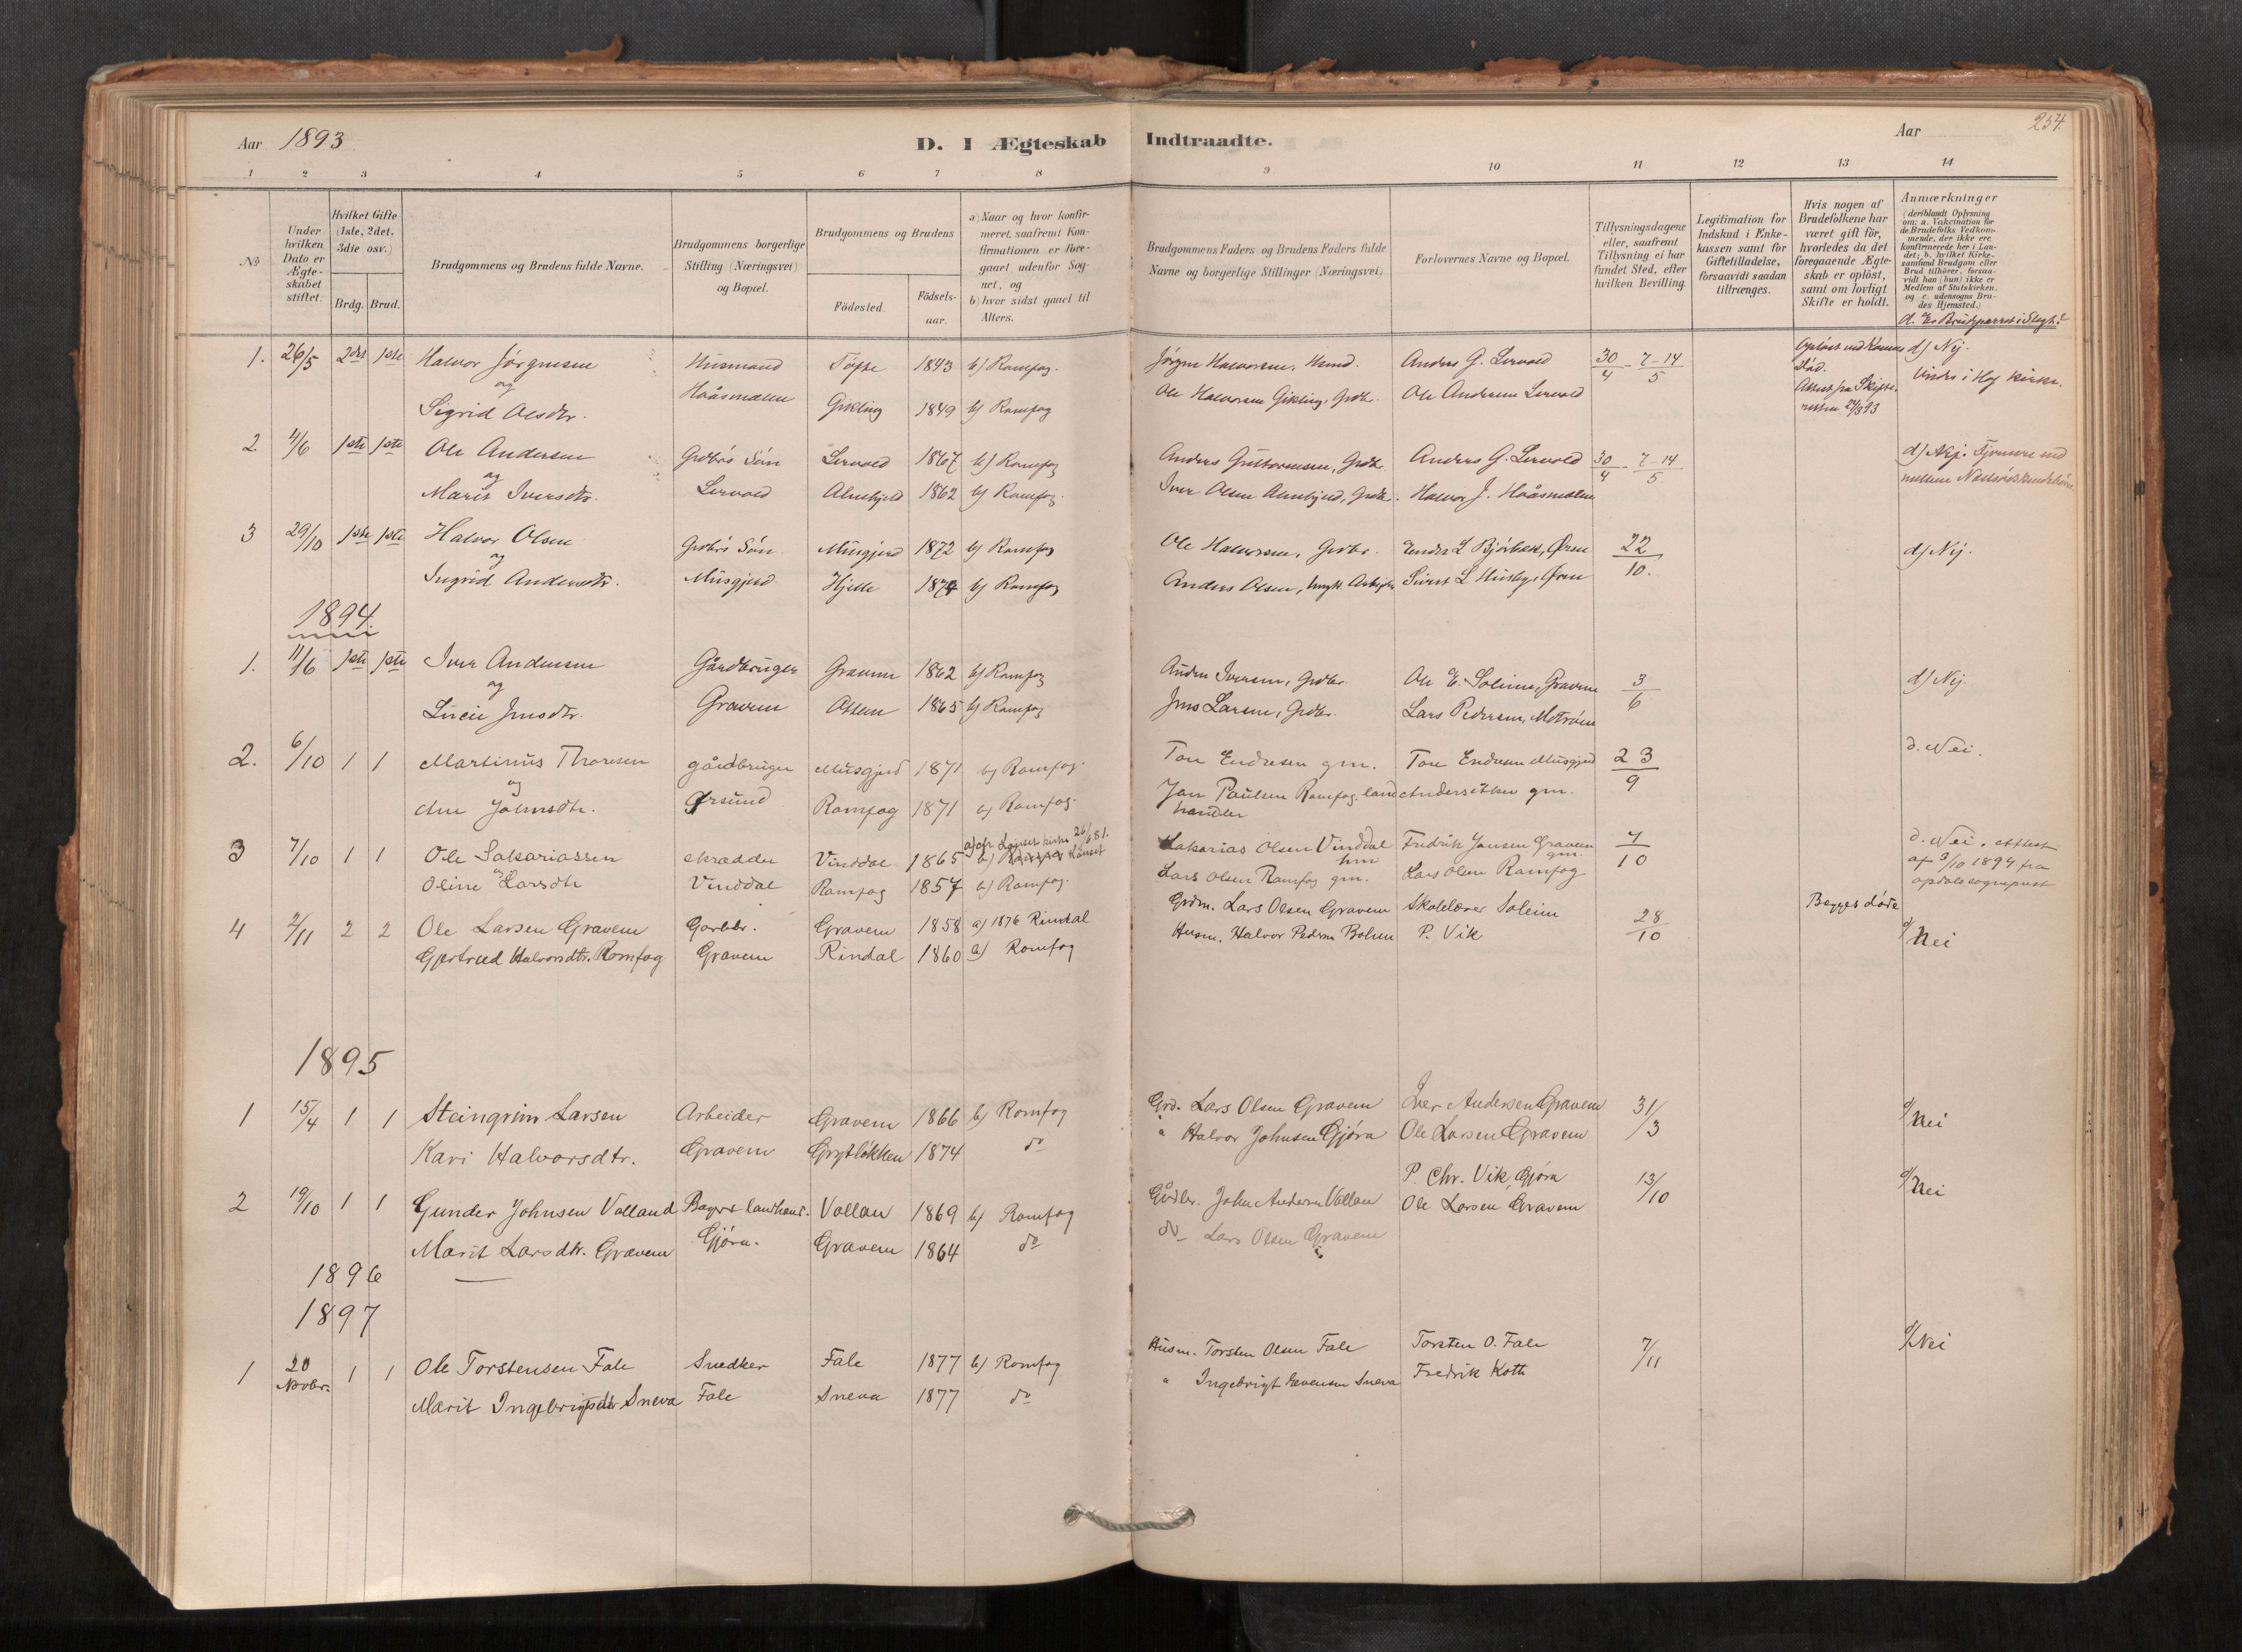 Aar 1893
D. I Ægteskab Indtraadte.
Aar
254.
1 2 3 4 5 6 7 8 9 10 11 12 13 14
No
Under hvilken Dato er Ægteskabet stiftet.
Hvilket Gifte (1ste, 2det, 3die osv.)
Brdg. Brud.
Brudgommens og Brudens fulde Navne.
Brudgommens borgerlige Stilling (Næringsvei) og Bopæl.
Brudgommens og Brudens
Födested.
Födsels-aar.
a) Naar og hvor konfirmeret, saafremt Konfirmationen er foregaaet udenfor Sognet, og
b) hvor sidst gaaet til Alters.
Brudgommens Faders og Brudens Faders fulde Navne og borgerlige Stillinger (Næringsvei)
Forlovernes Navne og Bopæl.
Tillysningsdagene eller, saafremt Tillysning ei har fundet Sted, efter hvilken Bevilling.
Legitimation for Indskud i Enkekassen samt for Giftetilladelse, forsaavidt saadan tiltrænges.
Hvis nogen af Brudefolkene har været gift før, hvorledes da det foregaaende Ægteskab er oplöst, samt om lovligt Skifte er holdt.
Anmærkninger
(deriblandt Oplysning om: a. Vakcination for de Brudefolks Vedkommende, der ikke ere konfirmerede her i Landet; b. hvilket Kirkesamfund Brudgom eller Brud tilhører, forsaavidt han (hun) ikke er Medlem af Statskirken, og c. udensogns Brudes Hjemsted.)
d. Er Brudeparret i Slegt?
1. 26/5 2det 1ste Halvor Jørgensen Husmand Tofte 1843 b) Romfog. Jørgen Halvorsen, Husmd. Anders G. Lervold 30/4 - 7-14/5 Opløst ved Konens Død. d) Nej.
og
Sigrid Olsdtr. Haasmælen Gikling 1849 b) Romfog Ole Halvorsen Gikling, Grdbr. Ole Andersen Lervold Attest fra Skifteretten Viede i Hof Kirke.
2 4/6 1ste 1ste Ole Andersen Grdbrs Søn Lervold 1867 b) Romfog Anders Guttormsen, Grdbr. Anders G. Lervold 30/4 - 7-14/5 d) Nej.
og
Marit Iversdtr. Lervold Almskjeld 1862 b) Romfog. Iver Olsen Almskjeld, Grdbr. Halvor J. Haasmælen
3 29/10 1ste 1ste Halvor Olsen Grdbrs Søn Musgjerd 1872 b) Romfog Ole Halvorsen, Grdbr. Endre L Bjørbæk, Øren 22/10. d) Nej.
og
Ingrid Andersdtr. Musgjerd Hjelle 1874 b) Romfog Anders Olsen, Sivert L Husby, Øren
1894.
1. 11/6 1ste 1ste Iver Andersen Gårdbruger Gravem 1862 b) Romfog Anders Iversen, Grdbr. Ole E. Soleim, Gravem 3/6 d) Nej.
og
Lucie Jensdtr. Gravem Ottem 1865 b) Romfog Jens Larsen, Grdbr. Lars Pedersen,
2. 6/10 1 1 Martinus Thoresen gårdbruger Musgjerd 1871 b) Romfog. Tore Endresen gm. Tore Endresen Musgjerd 23/9 d. Nei.
og
Ane Johnsdtr. Ørsund Romfog 1871 b) Romfog. Jon Paulsen Romfog. landhandler Anders gm.
3 7/10 1 1 Ole Sakariassen skrædder Vinddal 1865 a) Lønset kirke 26/6 81. b) Lønset Sakarias Olsen Vinddal hm Fredrik Jansen Gravem gm. 7/10 d. Nei. attest af 3/10 1894 fra opdals sognepræst
og
Oline Larsdtr Vinddal Romfog 1857 b) Romfog. Lars Olsen Romfog gm. Lars Olsen Romfog
4 2/11 2 2 Ole Larsen Gravem Gardbr. Gravem 1858 a) 1876 Rindal Grdm. Lars Olsen Gravem Skolelærer Soleim 28/10 Begges døde d/ Nei
Gjertrud Halvorsdtr. Romfog Gravem Rindal 1860 b) Romfog Husm. Halvor Pedersen Bolme P. Vik
1895
1 15/4 1 1 Steingrim Larsen Arbeider Gravem 1866 b) Romfog Grd. Lars Olsen Gravem Iver Andersen Gravem 31/3 d/ Nei
Kari Halvorsdtr. Gravem Grytløkken 1874 do " Halvor Johnsen Gjøra Ole Larsen Gravem
2 19/10 1 1 Gunder Johnsen Valland Bager landhand. Vollan 1869 b) Romfog Gårdbr. John Andersen Vollan P. Chr. Vik, Gjøra 13/10 d/ Nei
Ole Larsen Gravem
Marit Larsdtr. Gravem Gjøra. Gravem 1864 do do Lars Olsen Gravem
1896 —
1897
1 20 Novbr. 1 1 Ole Torstensen Fale Snedker Fale 1877 b) Romfog Husm. Torsten Olsen Fale Torsten O. Fale 7/11 d/ Nei
Marit Ingebrigtsdtr Sneva Fale Sneva 1877 do " Ingebrigt Evensen Sneva Fredrik Koth